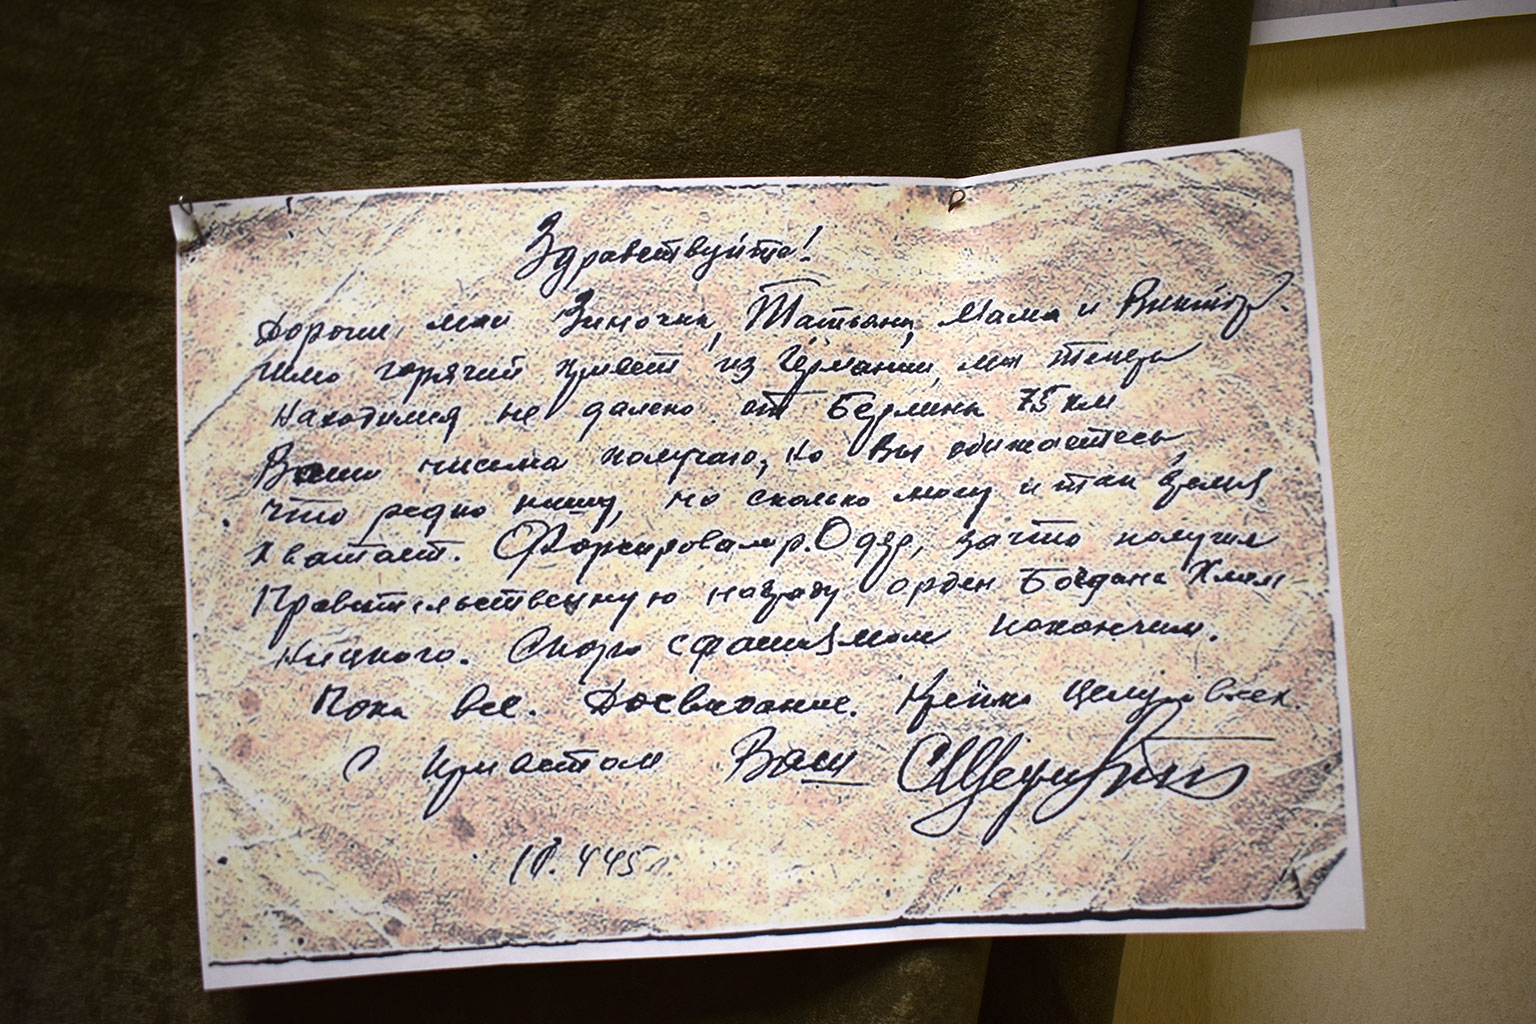 Здравствуйте!
Дорогие мои Зиночка, Татьяна, Мама и Виктор.
шлю горячий привет из Германии, мы теперь
находимся не далеко от Берлина 75 км
Ваши письма получаю, но Вы обижаетесь,
что редко пишу, но сколько могу и так время
хватает. Форсировали р. Одер, за что получил
Правительственную награду орден Богдана Хмель-
ницкого. Скоро с фашизмом покончим.
Пока все. Досвидание. Крепко целую всех.
С приветом Ваш